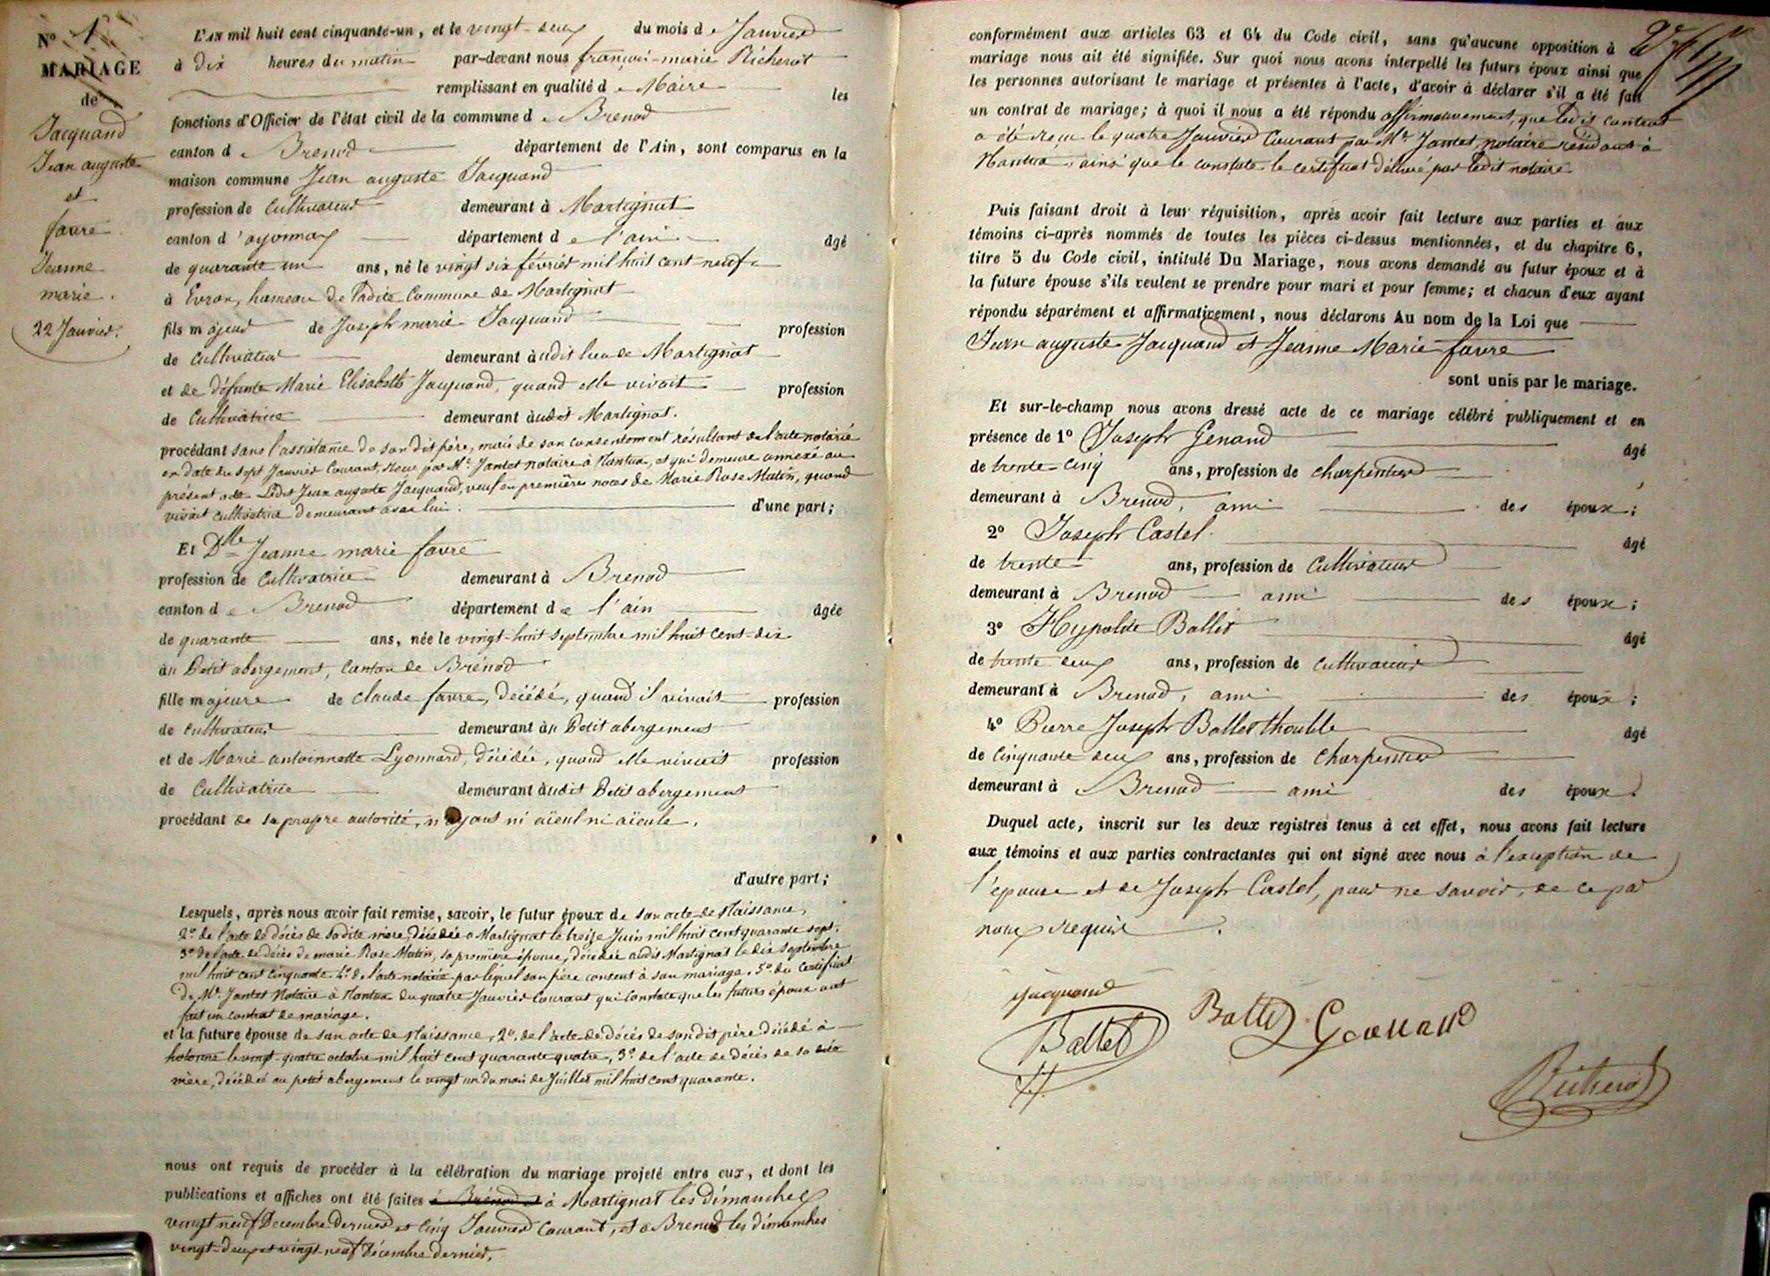 N° 1
MARIAGE
de
Jacquand
Jean auguste
et
favre
Jeanne
marie.
22 Janvier.
L'AN mil huit cent cinquante-un, et le vingt-deux du mois de Janvier
à dix heures du matin par-devant nous françois-marie Richerot
remplissant en qualité de Maire les
fonctions d'Officier de l'état civil de la commune de Brenod
canton de Brenod département de l'Ain, sont comparus en la
maison commune Jean auguste Jacquand
profession de Cultivateur demeurant à Martignat
canton d'oyonnax département de l'ain âgé
de quarante un ans, né le vingt six février mil huit cent neuf
à Evron, hameau de ladite Commune de Martignat
fils majeur de Joseph marie Jacquand profession
de Cultivateur demeurant audit lieu de Martignat
et de défunte Marie Elisabeth Jacquand, quand elle vivait profession
de Cultivatrice demeurant audit Martignat.
procédant sans l'assistance de son dit père, muni de son consentement résultant de l'acte notarié
en date du sept Janvier Courant, reçu par Me Jantet notaire à Nantua, et qui demeure annexé au
présent acte. Ledit Jean auguste Jacquand, veuf en premières noces de Marie Rose Mutin, quand
vivait cultivatrice demeurant avec lui. d'une part;
Et Dlle Jeanne marie favre
profession de Cultivatrice demeurant à Brenod
canton de Brenod département de l'ain âgée
de quarante ans, née le vingt-huit septembre mil huit cent-dix
au Petit abergement, Canton de Brénod
fille majeure de Claude favre, décédé, quand il vivait profession
de cultivateur demeurant au Petit abergement
et de Marie antoinnette Lyonnard, décédée, quand elle vivait profession
de Cultivatrice demeurant audit Petit abergement
procédant de sa propre autorité, n'ayant ni aïeul ni aïeule.
d'autre part;
Lesquels, après nous avoir fait remise, savoir, le futur époux de son acte de Naissance,
2° de l'acte de décès de sadite mère, décédée à Martignat le treize Juin mil huit cent quarante sept.
3° de l'acte de décès de marie Rose Mutin, sa première épouse, décédée audit Martignat le dix septembre
mil huit cent cinquante. 4° de l'acte notarié par lequel son père consent à son mariage. 5° du Certificat
de Me Jantet Notaire à Nantua du quatre Janvier Courant qui Constate que les futurs époux ont
fait un contrat de mariage.
et la future épouse de son acte de Naissance, 2° de l'acte de décès de son dit père décédé à
hotonne le vingt-quatre octobre mil huit cent quarante quatre, 3° de l'acte de décès de sa dite
mère, décédée au petit abergement le vingt un du mois de Juillet mil huit cent quarante.
nous ont requis de procéder à la célébration du mariage projeté entre eux, et dont les
publications et affiches ont été faites à Brénod et à Martignat les dimanches
vingt neuf Décembre dernier et Cinq Janvier Courant, et à Brenod les dimanches
vingt-deux et vingt-neuf décembre dernier.
conformément aux articles 63 et 64 du Code civil, sans qu'aucune opposition à
mariage nous ait été signifiée. Sur quoi nous avons interpellé les futurs époux ainsi que
les personnes autorisant le mariage et présentes à l'acte, d'avoir à déclarer s'il a été fait
un contrat de mariage; à quoi il nous a été répondu affirmativement, que ledit contrat
a été reçu le quatre Janvier Courant par Me Jantet, notaire résidant à
Nantua, ainsi que le constate le certificat délivré par ledit notaire
Puis faisant droit à leur réquisition, après avoir fait lecture aux parties et aux
témoins ci-après nommés de toutes les pièces ci-dessus mentionnées, et du chapitre 6,
titre 5 du Code civil, intitulé Du Mariage, nous avons demandé au futur époux et à
la future épouse s'ils veulent se prendre pour mari et pour femme; et chacun d'eux ayant
répondu séparément et affirmativement, nous déclarons Au nom de la Loi que
Jean auguste Jacquand et Jeanne Marie favre
sont unis par le mariage.
Et sur-le-champ nous avons dressé acte de ce mariage célébré publiquement et en
présence de 1° Joseph Genand âgé
de trente-cinq ans, profession de charpentier
demeurant à Brenod, ami des époux;
2° Joseph Castel. âgé
de trente ans, profession de Cultivateur
demeurant à Brenod ami des époux;
3° Hypolite Ballet âgé
de trente deux ans, profession de cultivateur
demeurant à Brenod, ami des époux;
4° Pierre Joseph Ballet thouble âgé
de Cinquante deux ans, profession de Charpentier
demeurant à Brenod ami des époux.
Duquel acte, inscrit sur les deux registres tenus à cet effet, nous avons fait lecture
aux témoins et aux parties contractantes qui ont signé avec nous à l'exception de
l'épouse et de Joseph Castel, pour ne savoir, de ce par
nous requis.
Jacquand
Ballet Ballet Genand
Richerot